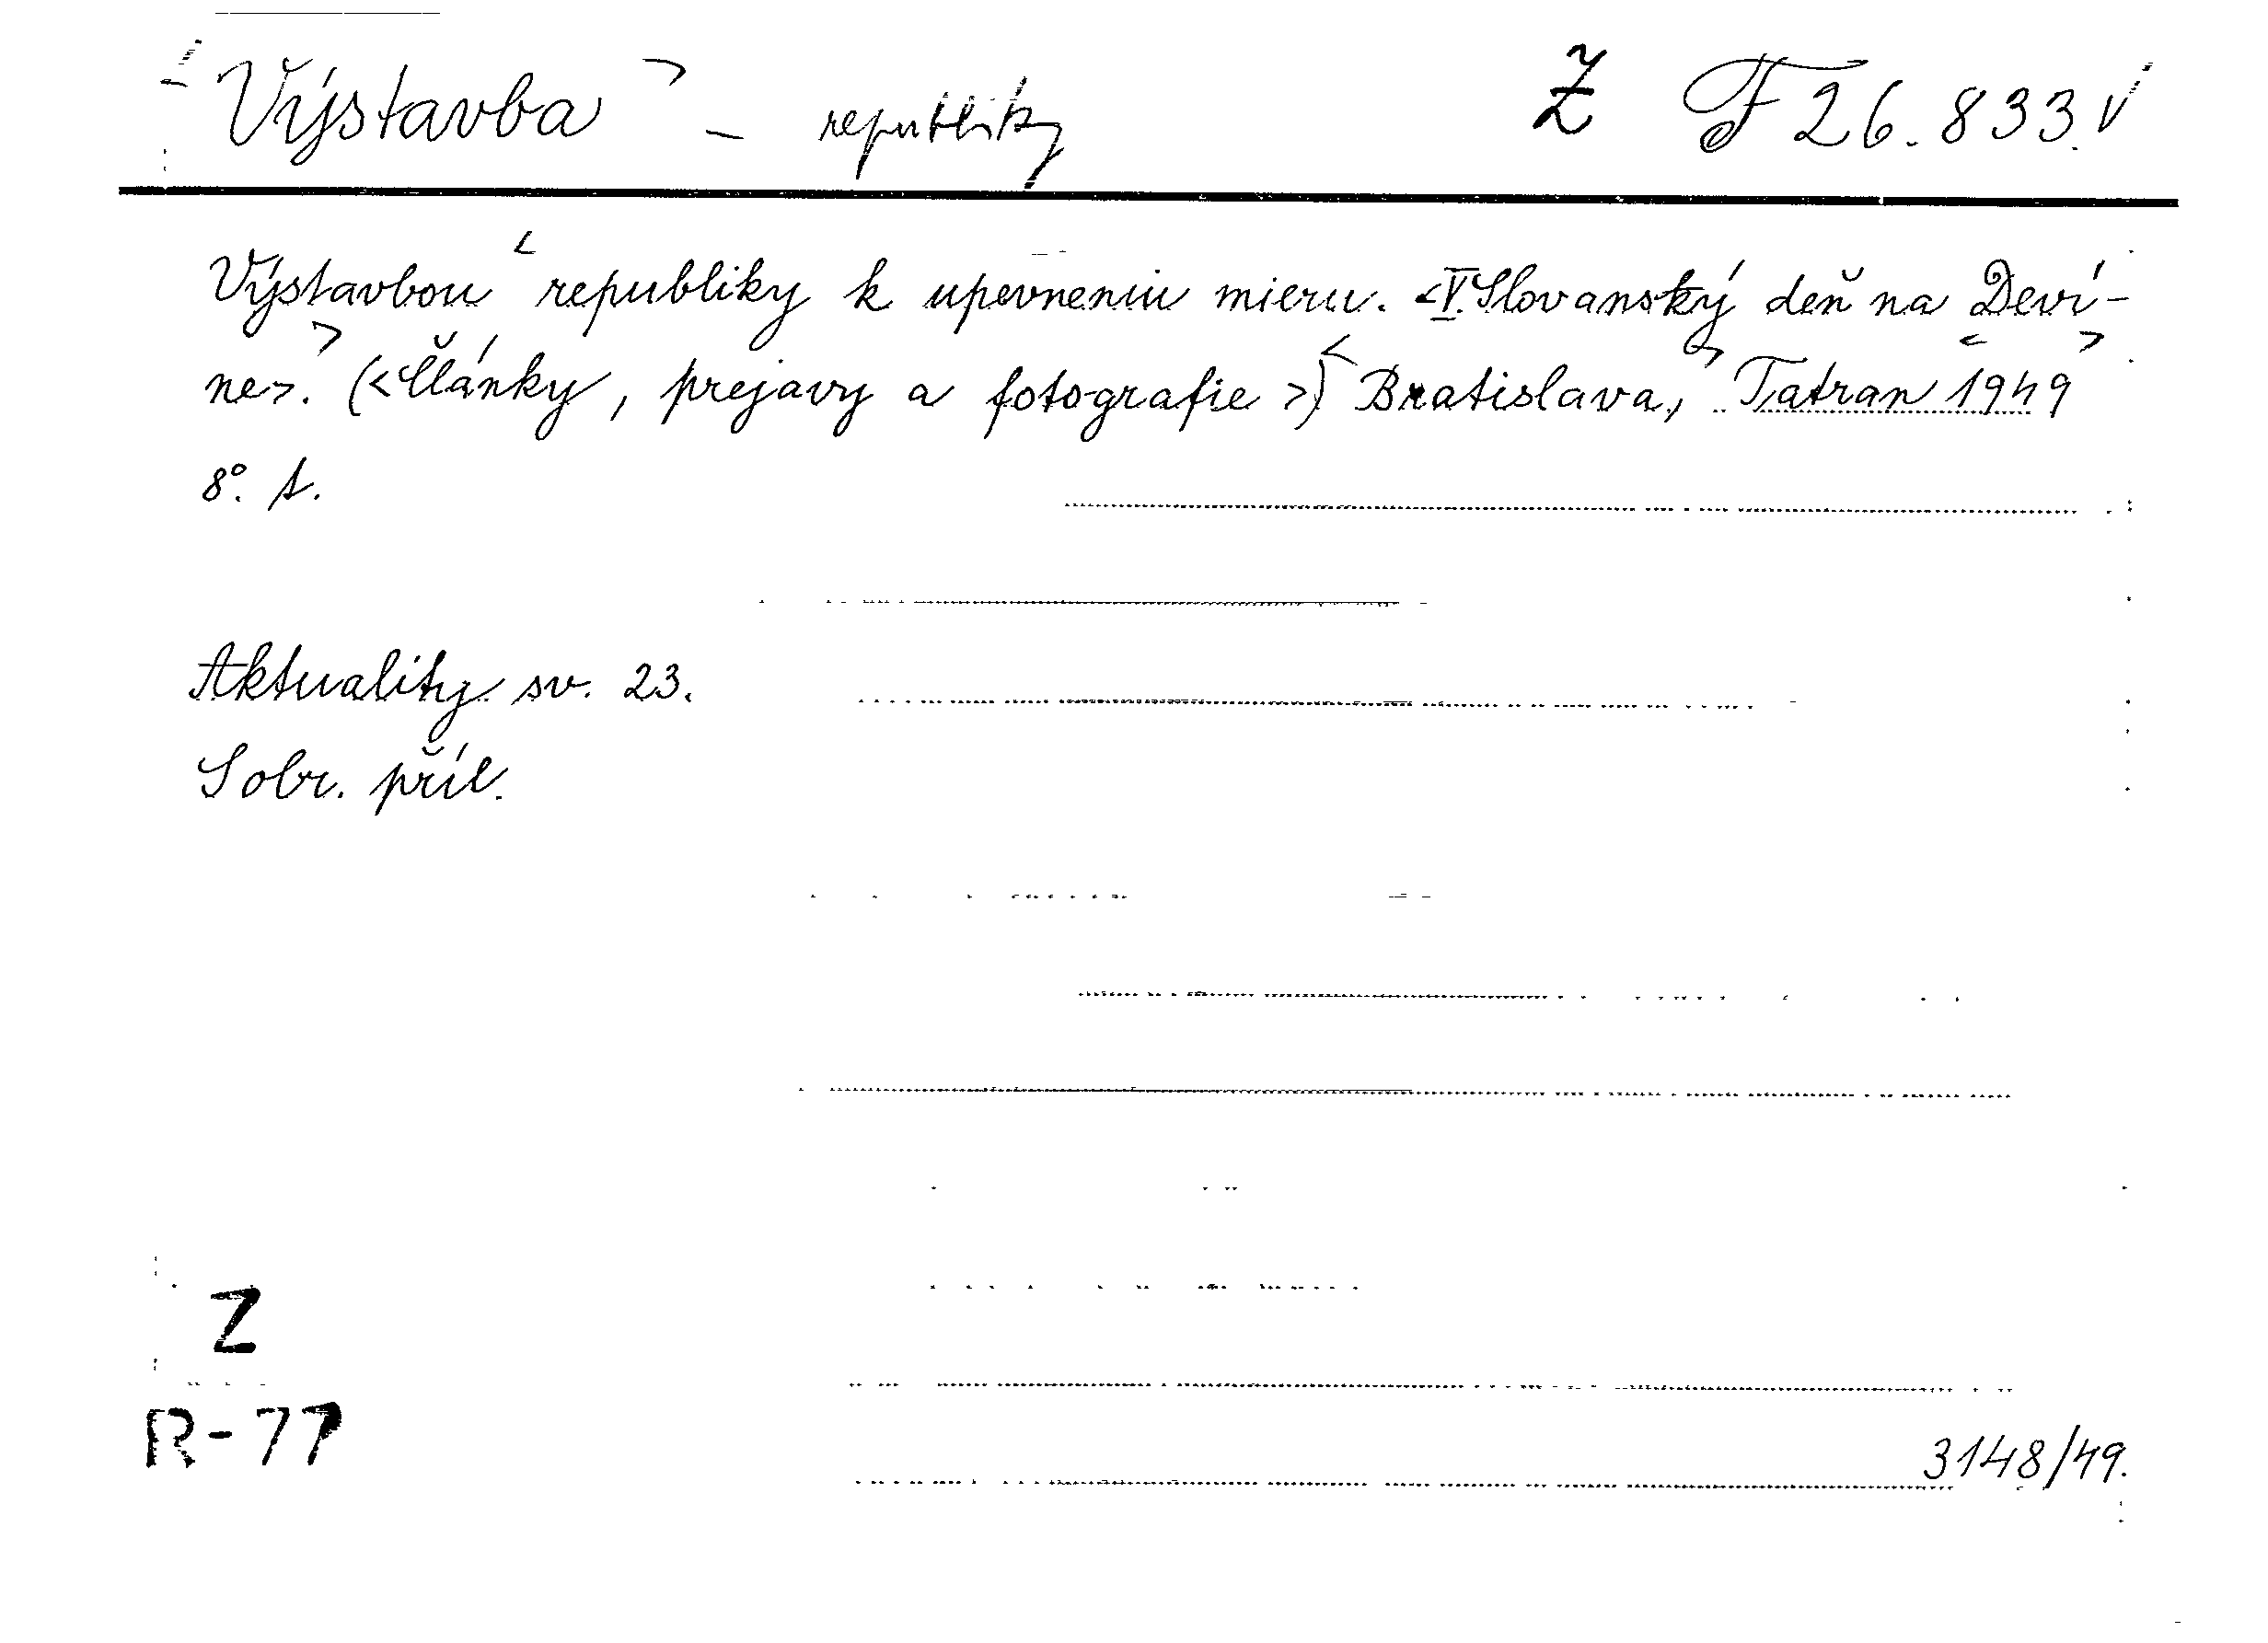 Výstavba - republiky Ž F 26.833.V
Výstavbou republiky k upevneniu mieru. <V. Slovanský deň na Deví-
ne>. (<Články, prejavy a fotografie>) Bratislava, Tatran 1949
8°. s.
Aktuality sv. 23.
S obr. příl.
Z
R-77
3148/49.